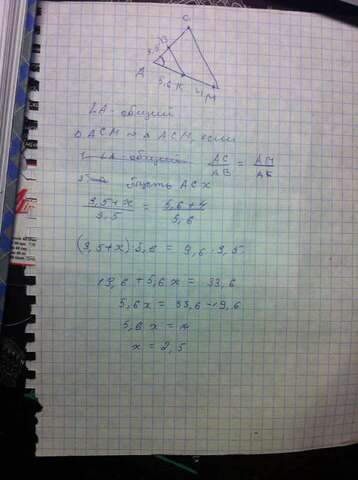 C
3,5 B
A
5,6 K 4 M
∠A - общий
△ ACM ∾ △ ACM, если
1. ∠A - общий
AC/AB = AM/AK
2. Пусть BC x
(3,5+x)/3,5 = (5,6+4)/5,6
(3,5+x) 5,6 = 9,6 · 3,5
19,6 + 5,6x = 33,6
5,6x = 33,6 - 19,6
5,6x = 14
x = 2,5